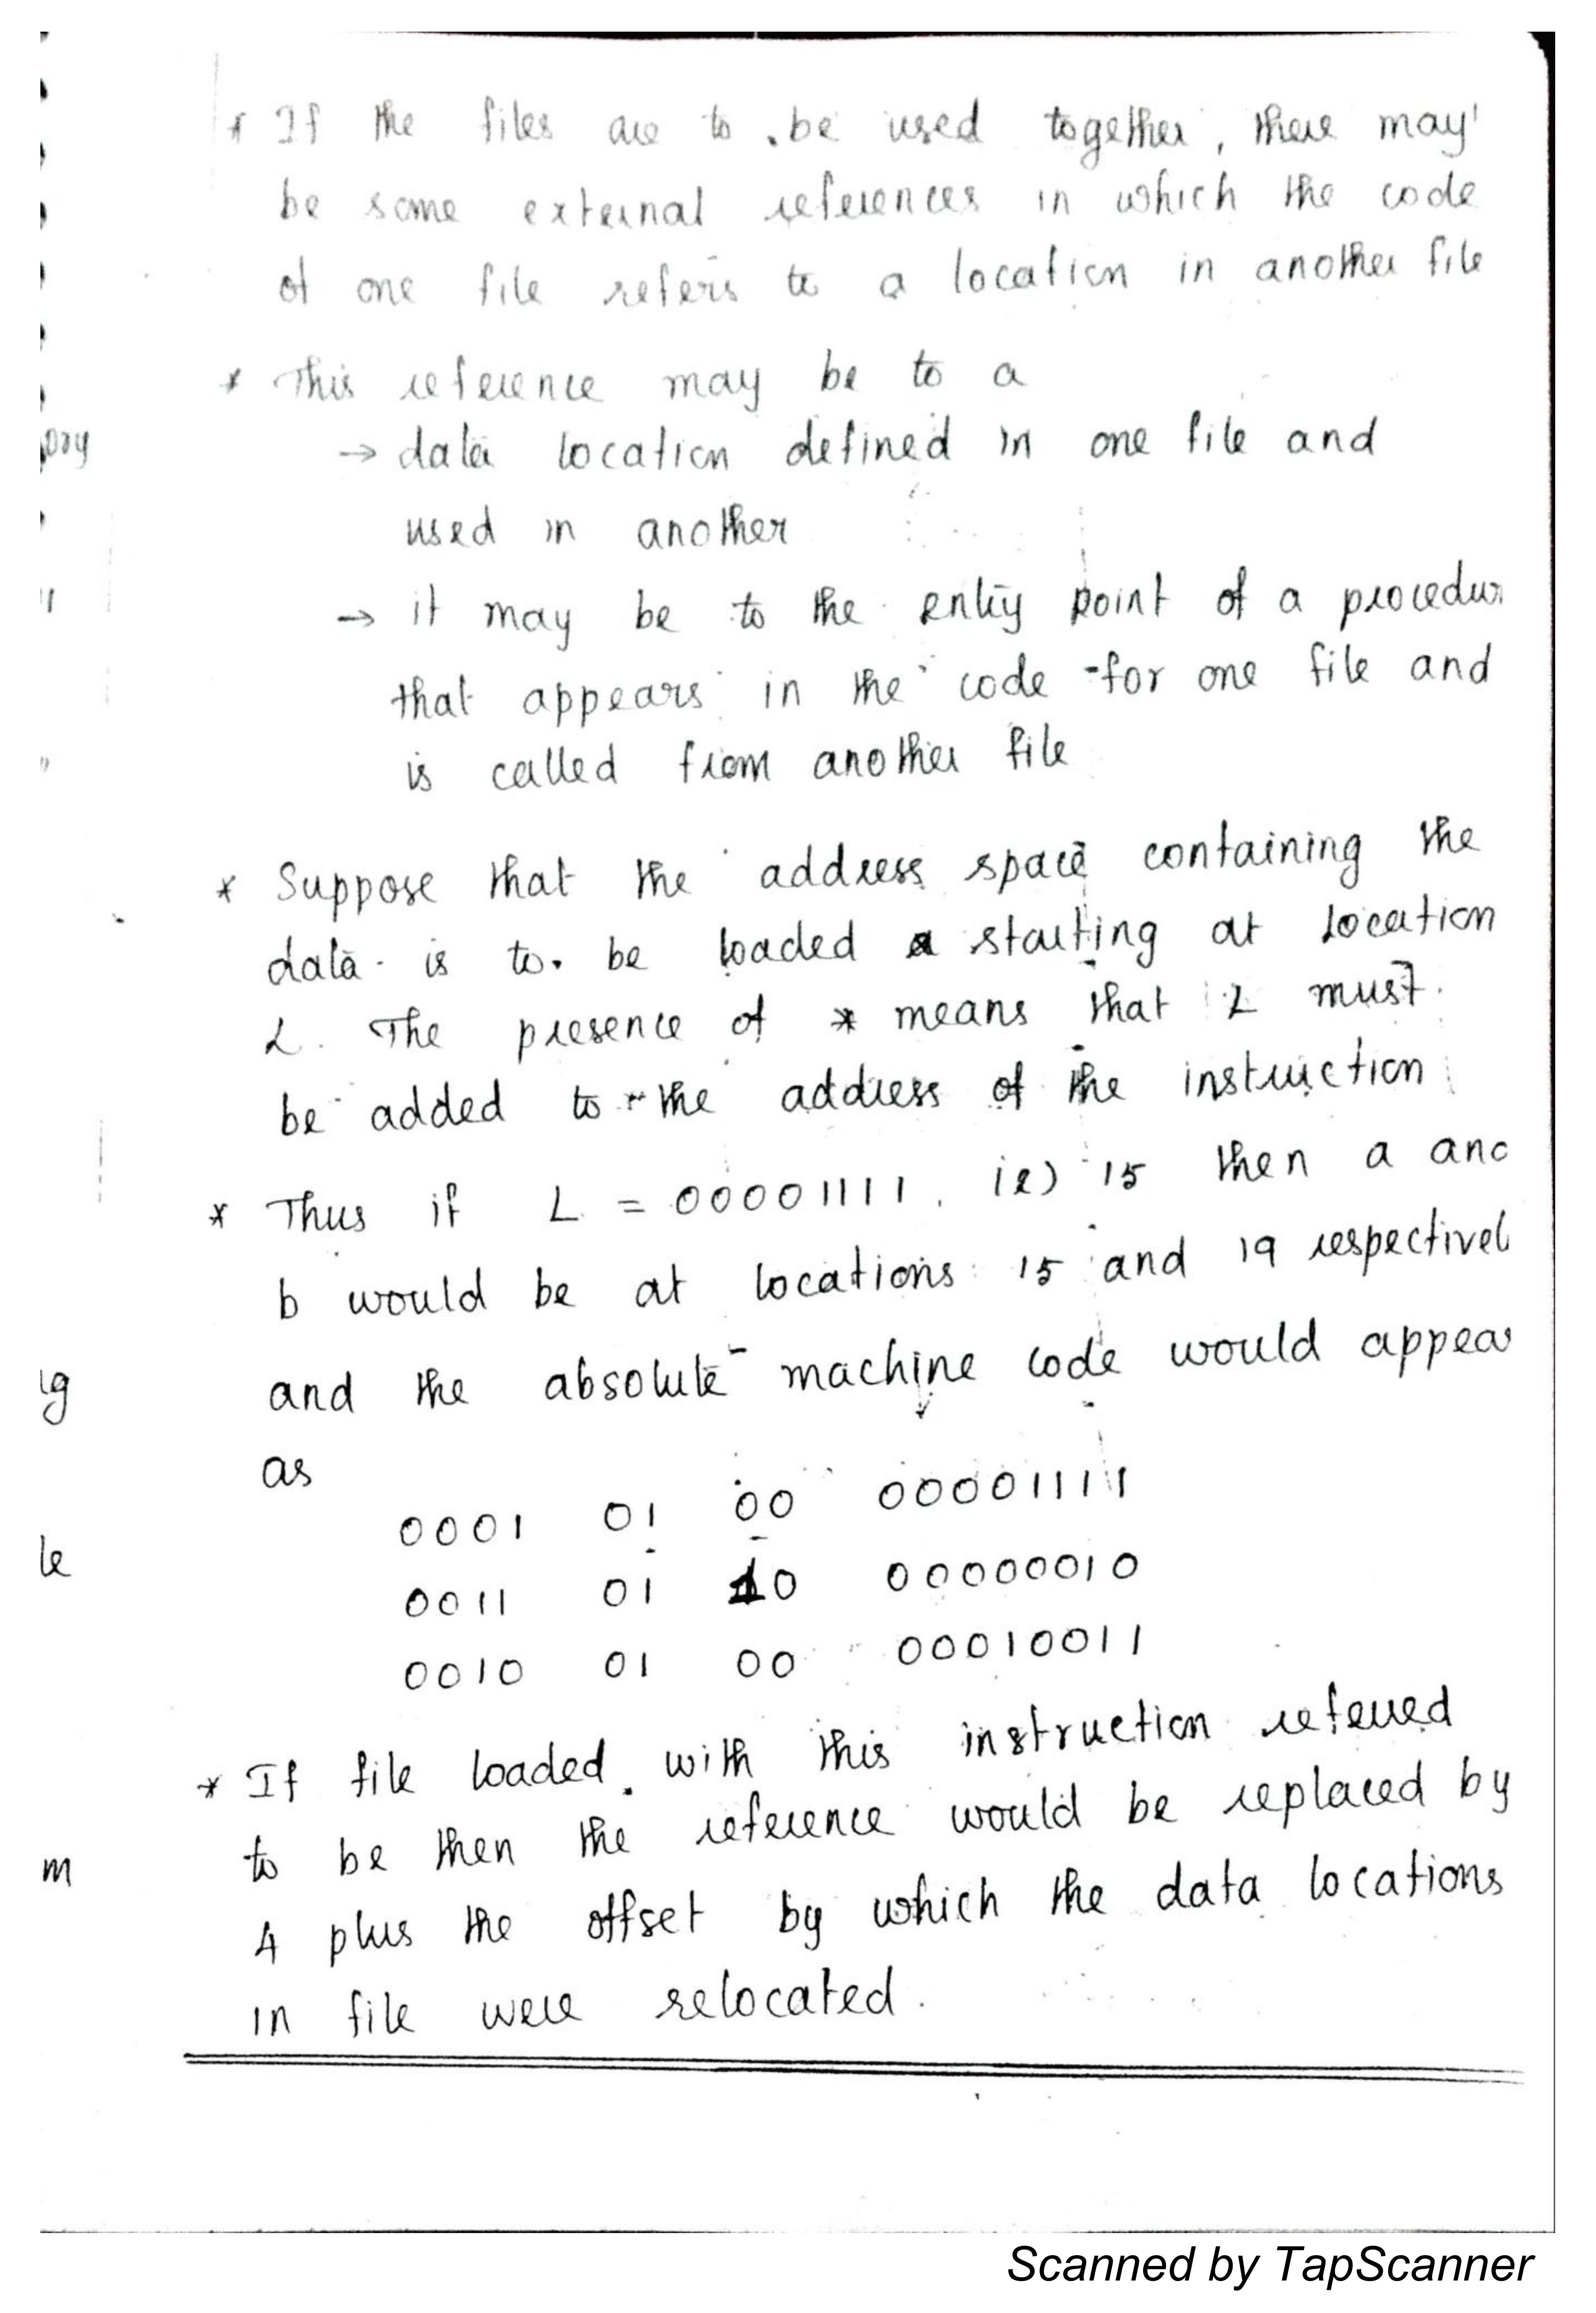 * If the files are to be used together, there may
be some external references in which the code
of one file refers to a location in another file
* This reference may be to a
→ data location defined in one file and
used in another
→ it may be to the entry point of a procedur
that appears in the code for one file and
is called from another file
* Suppose that the address space containing the
data is to be loaded starting at location
L. The presence of * means that L must
be added to the address of the instruction
* Thus if L = 00001111, ie) 15 then a and
b would be at locations 15 and 19 respectivel
and the absolute machine code would appear
as
0001 01 00 00001111
0011 01 10 00000010
0010 01 00 00010011
* If file loaded with this instruction referred
to be then the reference would be replaced by
4 plus the offset by which the data locations
in file were relocated.
ory
ig
le
m
Scanned by TapScanner